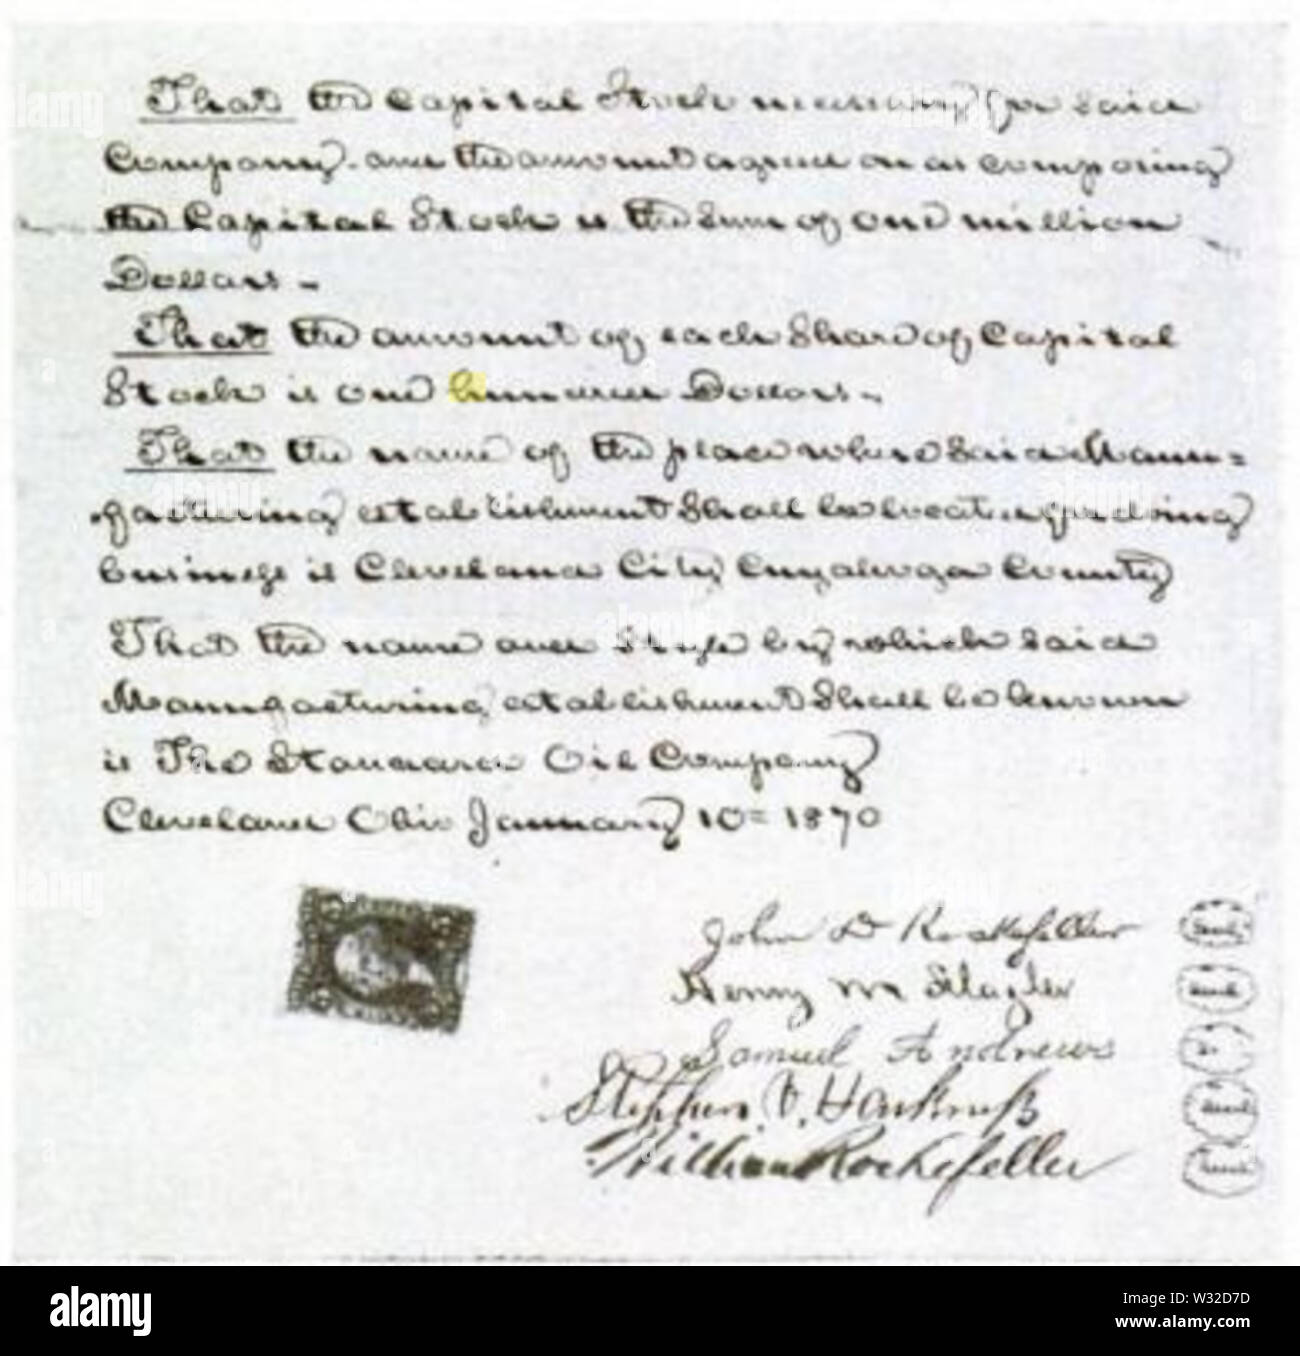 That the Capital Stock necessary for said
Company and the amount agreed on as composing
the Capital Stock is the Sum of One million
Dollars.-
That the amount of each Share of Capital
Stock is One hundred Dollars.-
That the name of the place where said Manu=
facturing establishment shall be located for doing
business is Cleveland City Cuyahoga County
That the name and style by which said
Manufacturing establishment shall be known
is The Standard Oil Company
Cleveland Ohio January 10= 1870
John D Rockefeller
Henry M Flagler
Samuel Andrews
Stephen V. Harkness
William Rockefeller
alamy
Image ID: W32D7D
www.alamy.com